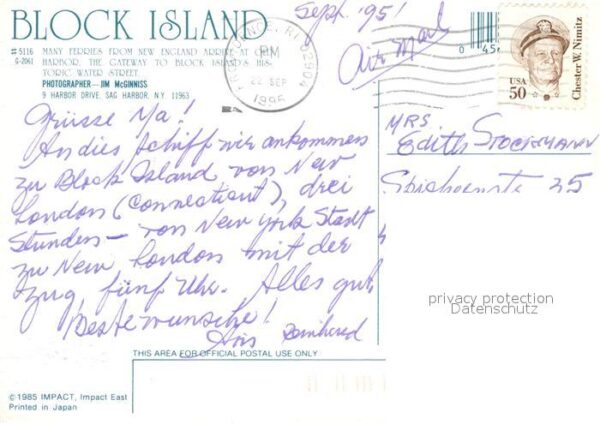 BLOCK ISLAND
# 5116 MANY FERRIES FROM NEW ENGLAND ARRIVE AT OLD
G-2061 HARBOR, THE GATEWAY TO BLOCK ISLAND'S HIS-
TORIC WATER STREET.
PHOTOGRAPHER—JIM McGINNISS
9 HARBOR DRIVE, SAG HARBOR, N.Y. 11963
Sept. '95!
Air Mail
PROVIDENCE, RI 02904
PM
22 SEP
1995
0 45
USA
50
Chester W. Nimitz
Grüsse Ya!
An dies Schiff wir ankommen
zu Block Island von New
London (Connecticut), drei
Stunden — von New York Stadt
zu New London mit der
Zug fünf Uhr. Alles gut
Beste wunsche!
MRS
Edith STOCKMANN
25
privacy protection
Datenschutz
THIS AREA FOR OFFICIAL POSTAL USE ONLY
©1985 IMPACT, Impact East
Printed in Japan